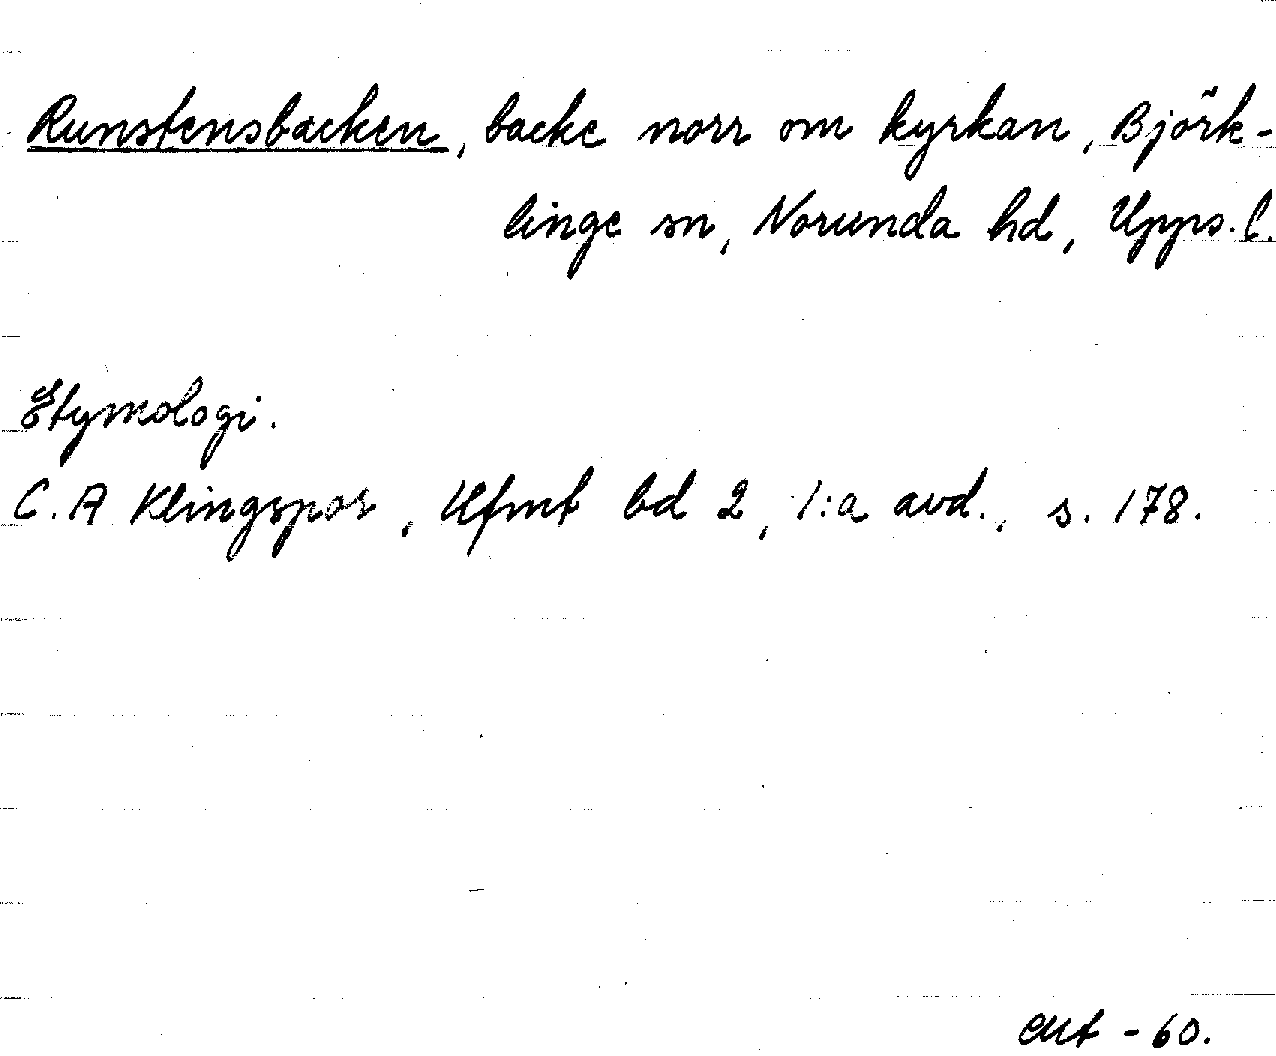 Runstensbacken, backe norr om kyrkan, Björk-
linge sn, Norunda hd, Upps. l.
Etymologi.
C. A Klingspor, Ufmt bd 2, 1:a avd., s. 178.
- 60.